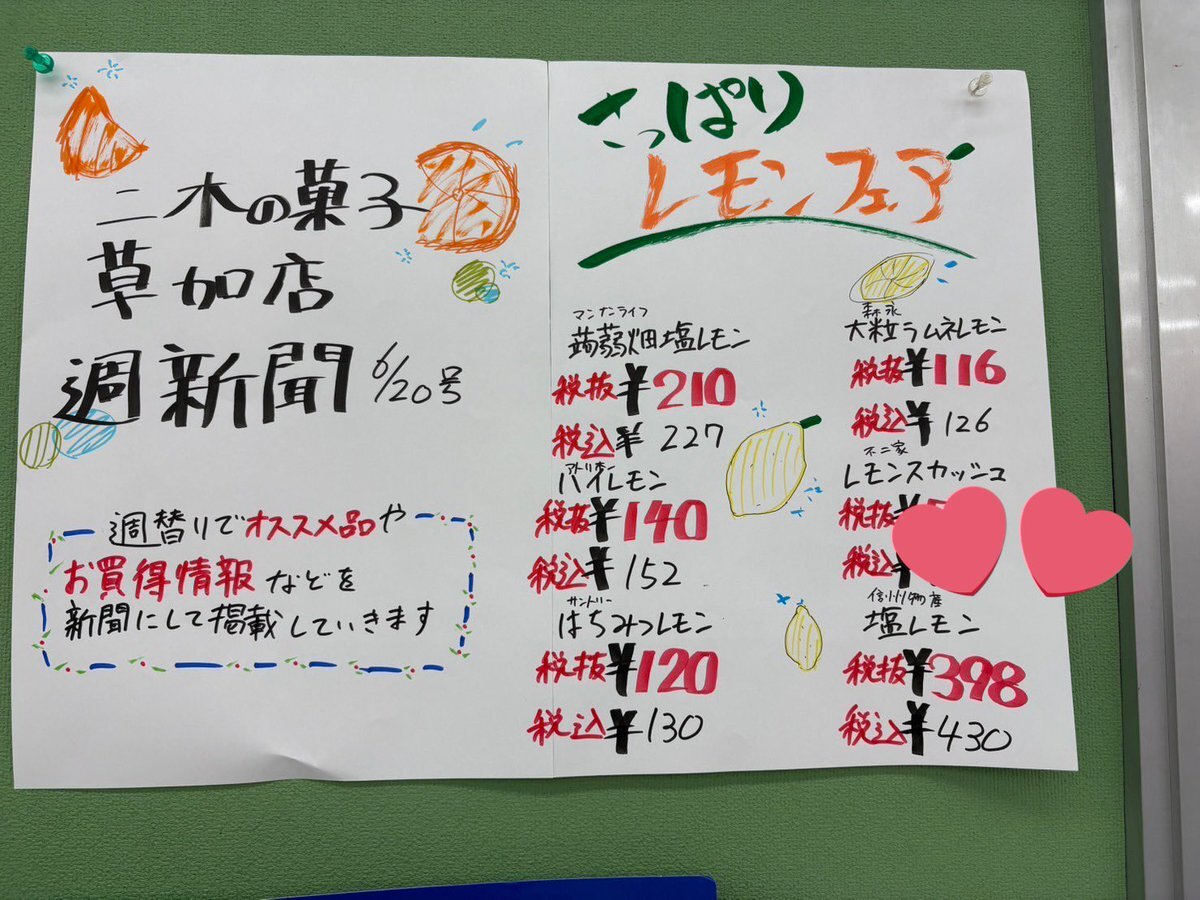 二木の菓子
草加店
週新聞 6/20号
週替りでオススメ品や
お買得情報などを
新聞にして掲載していきます
さっぱり
レモンフェア
マンナンライフ
蒟蒻畑塩レモン
税抜¥210
税込¥227
アトリオン
パイレモン
税抜¥140
税込¥152
サントリー
はちみつレモン
税抜¥120
税込¥130
森永
大粒ラムネレモン
税抜¥116
税込¥126
不二家
レモンスカッシュ
税抜¥
税込¥
信州物産
塩レモン
税抜¥398
税込¥430